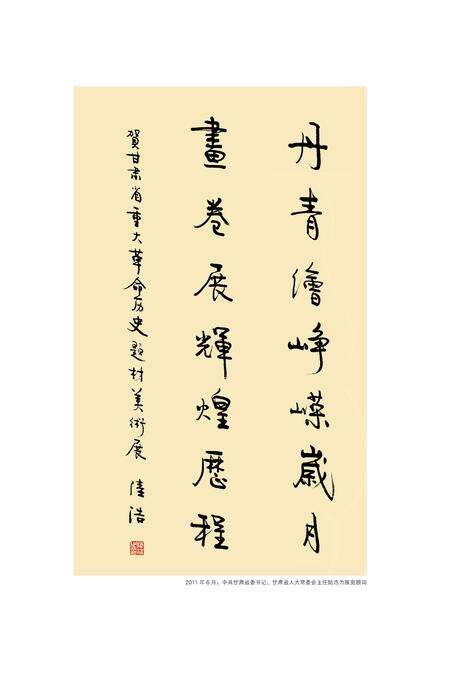 丹青繪崢嶸歲月
畫卷展輝煌歷程
賀甘肃省重大革命历史题材美術展 陸浩
2011 年 6 月，中共甘肃省委书记、甘肃省人大常委会主任陆浩为展览题词